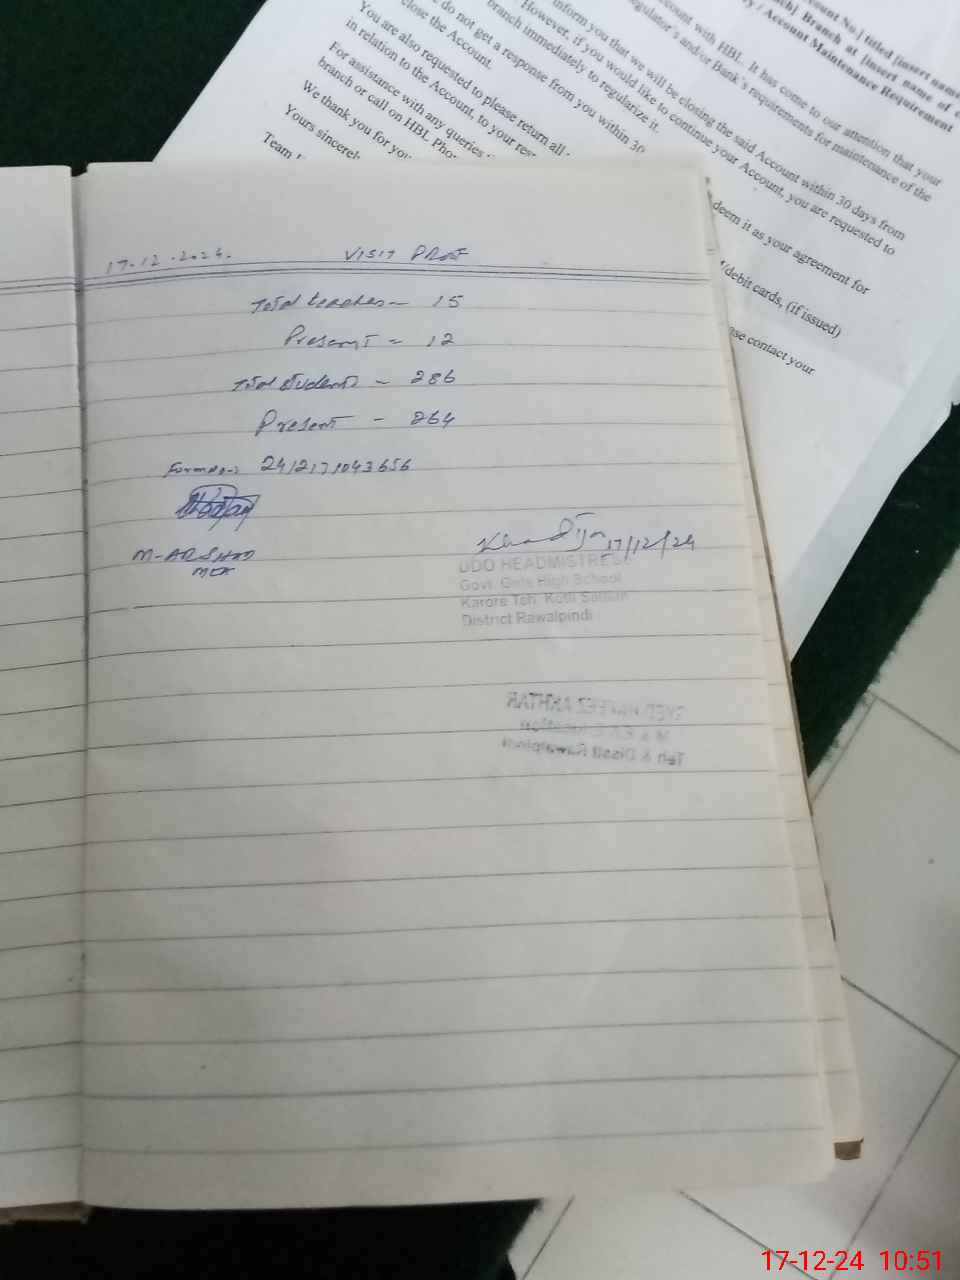 Account No.] titled [insert name
Branch at [insert name of
y / Account Maintenance Requirement
account with HBL. It has come to our attention that your
regulator's and/or Bank's requirements for maintenance of the
inform you that we will be closing the said Account within 30 days from
However, if you would like to continue your Account, you are requested to
branch immediately to regularize it.
do not get a response from you within 30
deem it as your agreement for
close the Account.
You are also requested to please return all
/debit cards, (if issued)
in relation to the Account, to your
For assistance with any queries
contact your
branch or call on HBL
We thank you for you
Yours sincerel
Team
17-12-2024. VISIT PROF
Total teachers - 15
Present - 12
Total students - 286
Present - 264
Form no- 2412171043656
M-ARSHAD
MEA
17/12/24
DDO HEADMISTRESS
Govt. Girls High School
Karore Teh. Kotli Sattian
District Rawalpindi
SYED HAFEEZ AKHTAR
Teh & Distt Rawalpindi
17-12-24 10:51